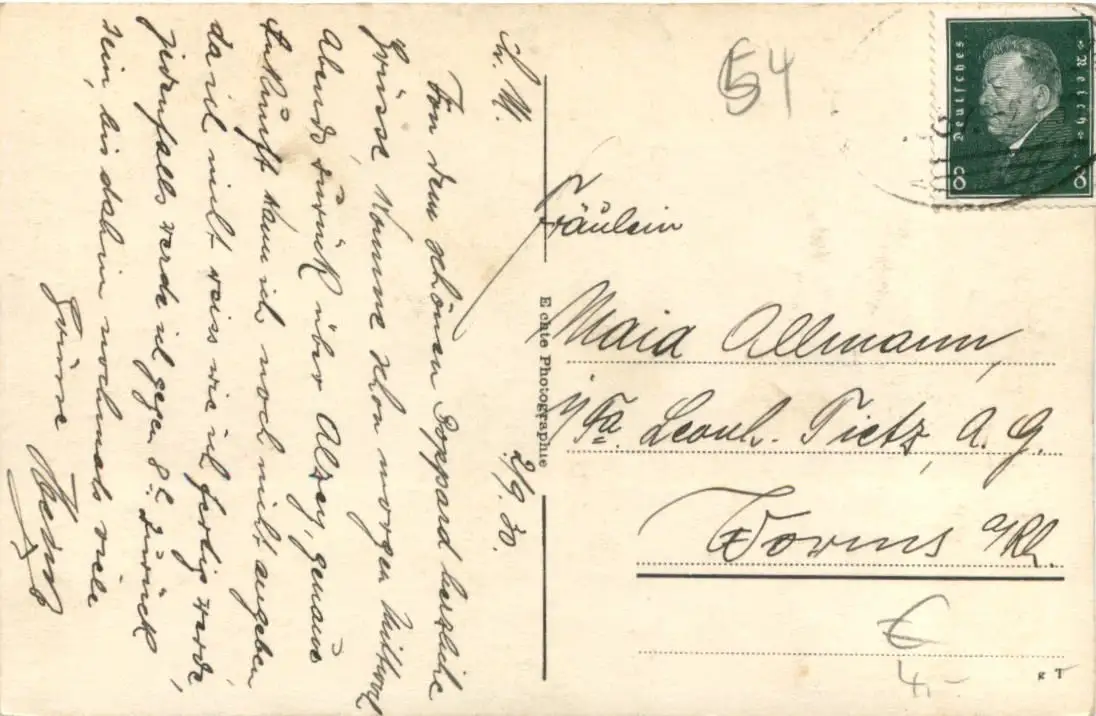 L. M.
2/9.30.
Von dem schönen Boppard herzliche
Grüsse, komme schon morgen Mittwoch
Abend zurück über Alzey, genaue
Ankunft kann ich noch nicht angeben
da ich nicht weiss wie ich fertig werde,
jedenfalls werde ich gegen 8 zurück
sein, bis dahin nochmals viele
Grüsse
Echte Photographie
54
Deutsches Reich
8 8
Fräulein
Maia Allmann,
i/Fa. Leonh. Tietz, A. G.
Worms a/Rh.
€
4,-